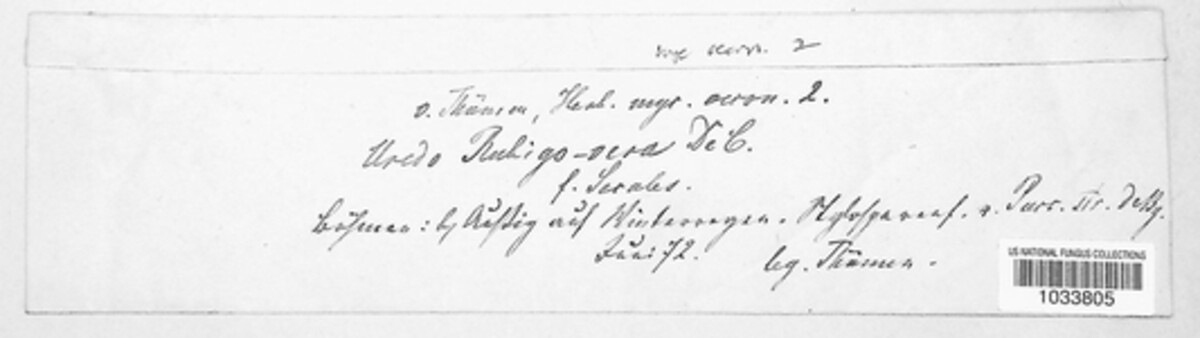 myc. oecon. 2
v. Thümen, Herb. myc. oecon. 2.
Uredo Rubigo-vera DeC.
f. Secales.
Böhmen: bj Außig auf Winterroggen. Stylosporenf. v. Pucc. str. Desbg.
Juni 72. leg. Thümen.
US NATIONAL FUNGUS COLLECTIONS
1033805